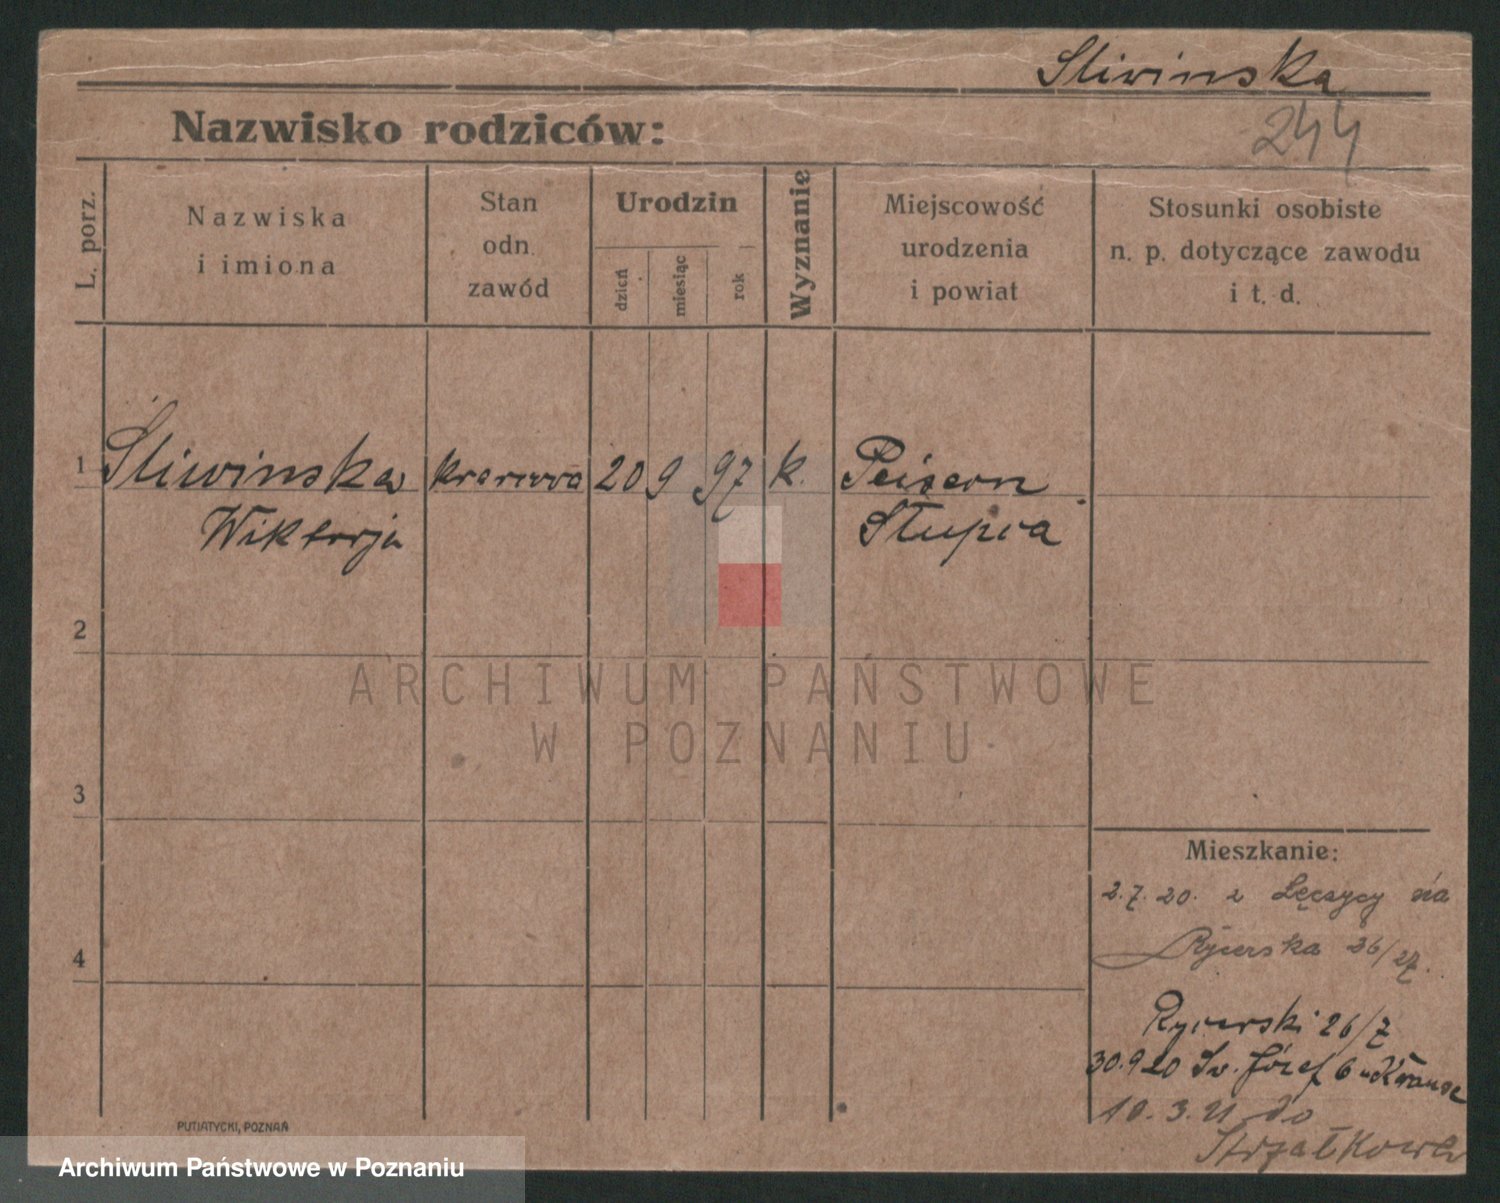 Sliwinska
244
Nazwisko rodziców:
L. porz.
Nazwiska
i imiona
Stan
odn.
zawód
Urodzin
dzień
miesiąc
rok
Wyznanie
Miejscowość
urodzenia
i powiat
Stosunki osobiste
n. p. dotyczące zawodu
i t. d.
1 Śliwinska krawowa 20 9 97 k. Peisern
Wiktorja Słupca
2
3
4
Mieszkanie:
2.7.20. z Łęczycy na
Rycerska 26/27.
Rycerski 26/7
30.9 20 Sv. Józef 6 u Krause
10.3.21 do
Strzałkowa
PUTIATYCKI, POZNAŃ
ARCHIWUM PAŃSTWOWE
W POZNANIU
Archiwum Państwowe w Poznaniu